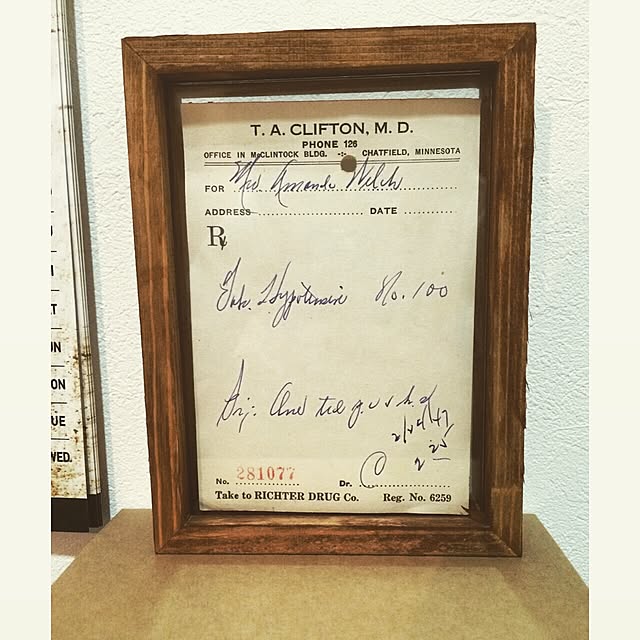 T. A. CLIFTON, M. D.
PHONE 126
OFFICE IN McCLINTOCK BLDG. -:- CHATFIELD, MINNESOTA
FOR Mrs Amanda Welch
ADDRESS DATE
Rx
Tab. Hypotensive No. 100
Sig: One
2/24/47
2 25
No. 281077 Dr. C
Take to RICHTER DRUG Co. Reg. No. 6259
UN
ON
UE
WED.